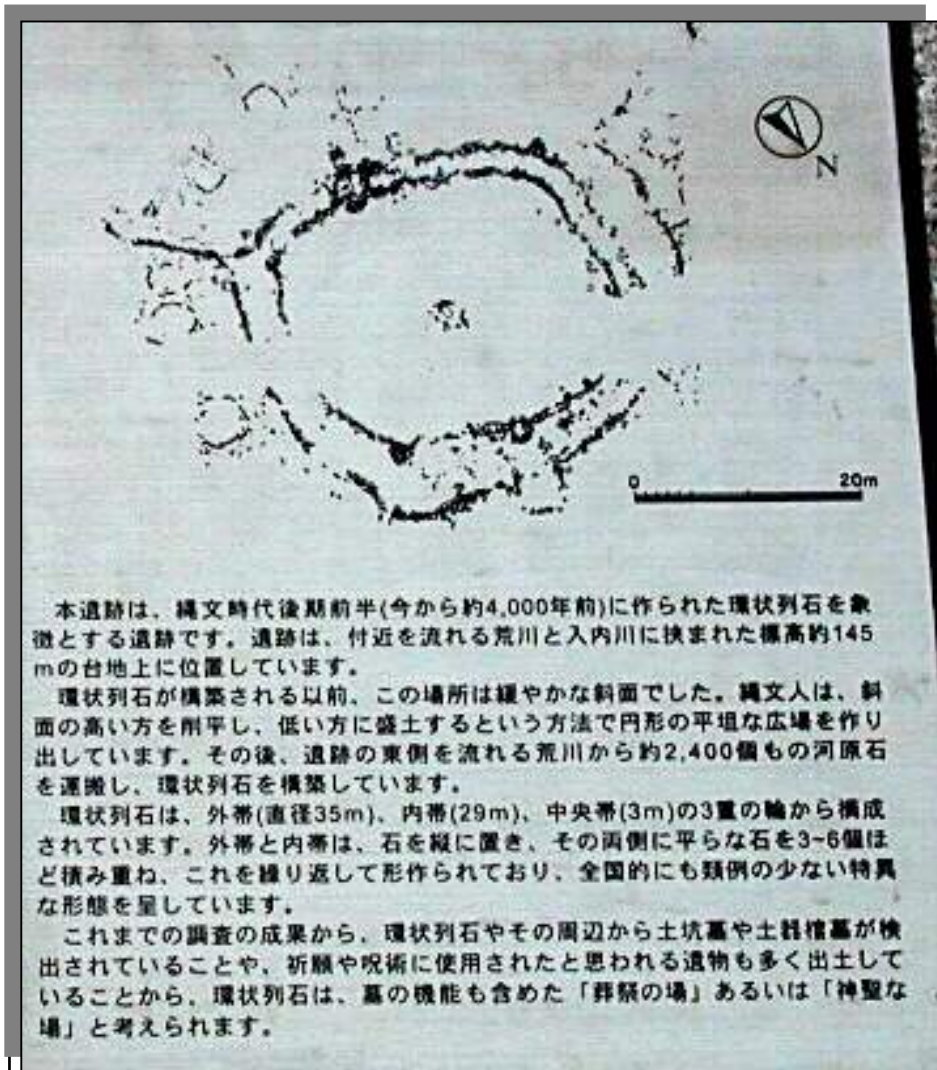 N
0 20m
本遺跡は、縄文時代後期前半(今から約4,000年前)に作られた環状列石を象
徴とする遺跡です。遺跡は、付近を流れる荒川と入内川に挟まれた標高約145
mの台地上に位置しています。
環状列石が構築される以前、この場所は緩やかな斜面でした。縄文人は、斜
面の高い方を削平し、低い方に盛土するという方法で円形の平坦な広場を作り
出しています。その後、遺跡の東側を流れる荒川から約2,400個もの河原石
を運搬し、環状列石を構築しています。
環状列石は、外帯(直径35m)、内帯(29m)、中央帯(3m)の3重の輪から構成
されています。外帯と内帯は、石を縦に置き、その両側に平らな石を3~6個ほ
ど積み重ね、これを繰り返して形作られており、全国的にも類例の少ない特異
な形態を呈しています。
これまでの調査の成果から、環状列石やその周辺から土坑墓や土器棺墓が検
出されていることや、祈願や呪術に使用されたと思われる遺物も多く出土して
いることから、環状列石は、墓の機能も含めた「葬祭の場」あるいは「神聖な
場」と考えられます。